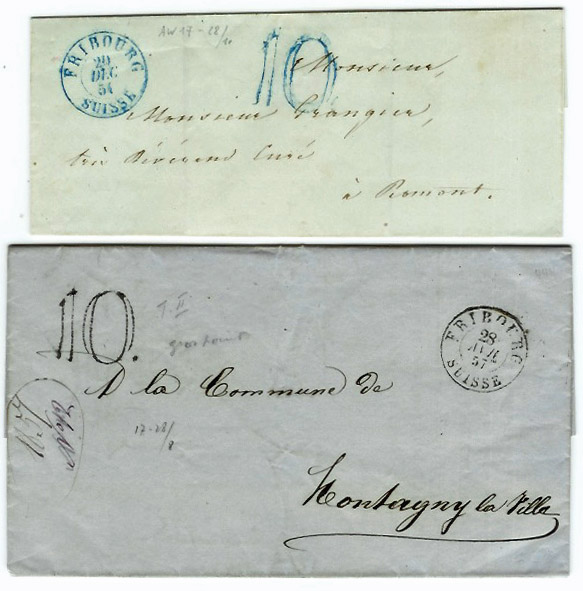 FRIBOURG
20
DEC
54
SUISSE
AW 17-28/
10
Monsieur,
Monsieur Grangier,
très Révérend Curé
à Romont.
10.
T. II
FRIBOURG
28
AVR
57
SUISSE
A la Commune de
17-28/
8
Montagny la Ville